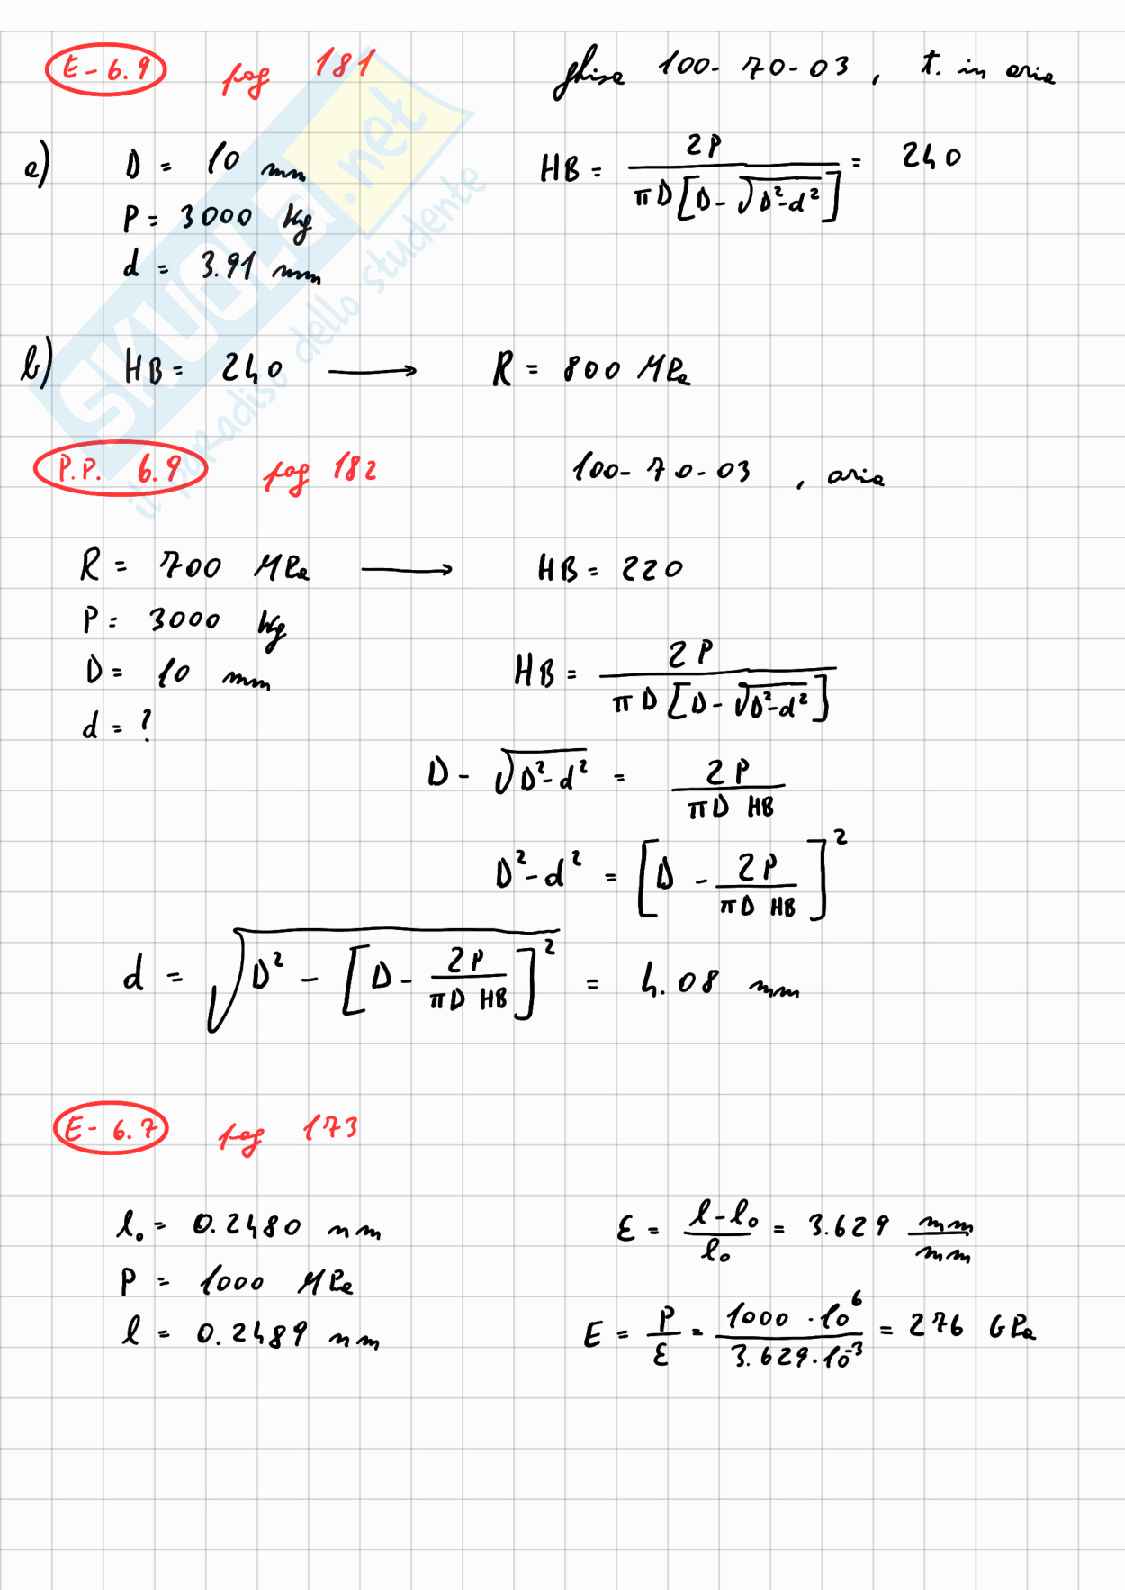 E-6.9 pag 181 ghisa 100-70-03, t. in aria
a) D = 10 mm HB = 2P / πD[D-√D²-d²] = 240
P = 3000 kg
d = 3.91 mm
b) HB = 240 → R = 800 MPa
P.P. 6.9 pag 182 100-70-03, aria
R = 700 MPa → HB = 220
P = 3000 kg
D = 10 mm HB = 2P / πD[D-√D²-d²]
d = ?
D - √D²-d² = 2P / πD HB
D²-d² = [D - 2P / πD HB]²
d = √D² - [D - 2P / πD HB]² = 4.08 mm
E-6.7 pag 173
l₀ = 0.2480 mm ε = l-l₀ / l₀ = 3.629 mm / mm
P = 1000 MPa
l = 0.2489 mm E = P / ε = 1000·10⁶ / 3.629·10⁻³ = 276 GPa
SKUOLA.net
il paradiso dello studente